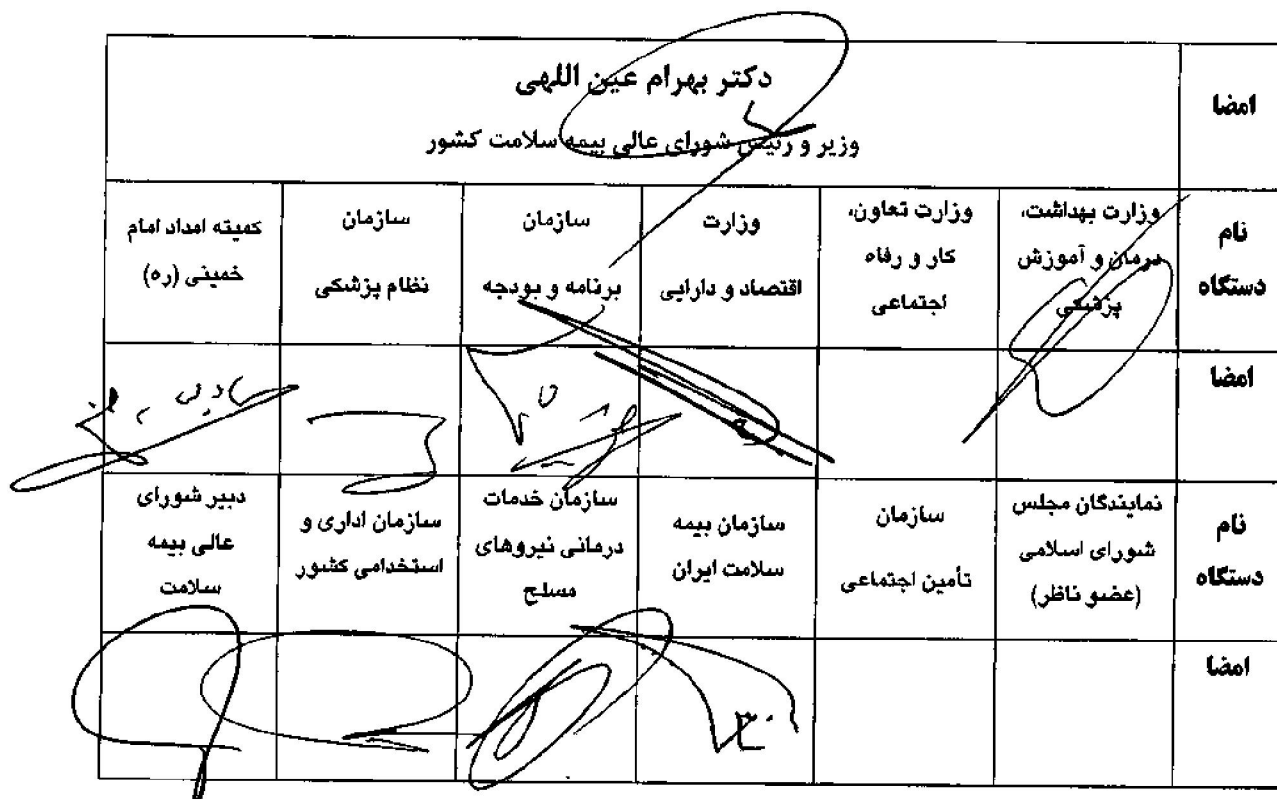 امضا
دکتر بهرام عین اللهی
وزیر و رئیس شورای عالی بیمه سلامت کشور
نام دستگاه
وزارت بهداشت،
درمان و آموزش
پزشکی
وزارت تعاون،
کار و رفاه
اجتماعی
وزارت
اقتصاد و دارایی
سازمان
برنامه و بودجه
سازمان
نظام پزشکی
کمیته امداد امام
خمینی (ره)
امضا
نام
دستگاه
نمایندگان مجلس
شورای اسلامی
(عضو ناظر)
سازمان
تأمین اجتماعی
سازمان بیمه
سلامت ایران
سازمان خدمات
درمانی نیروهای
مسلح
سازمان اداری و
استخدامی کشور
دبیر شورای
عالی بیمه
سلامت
امضا